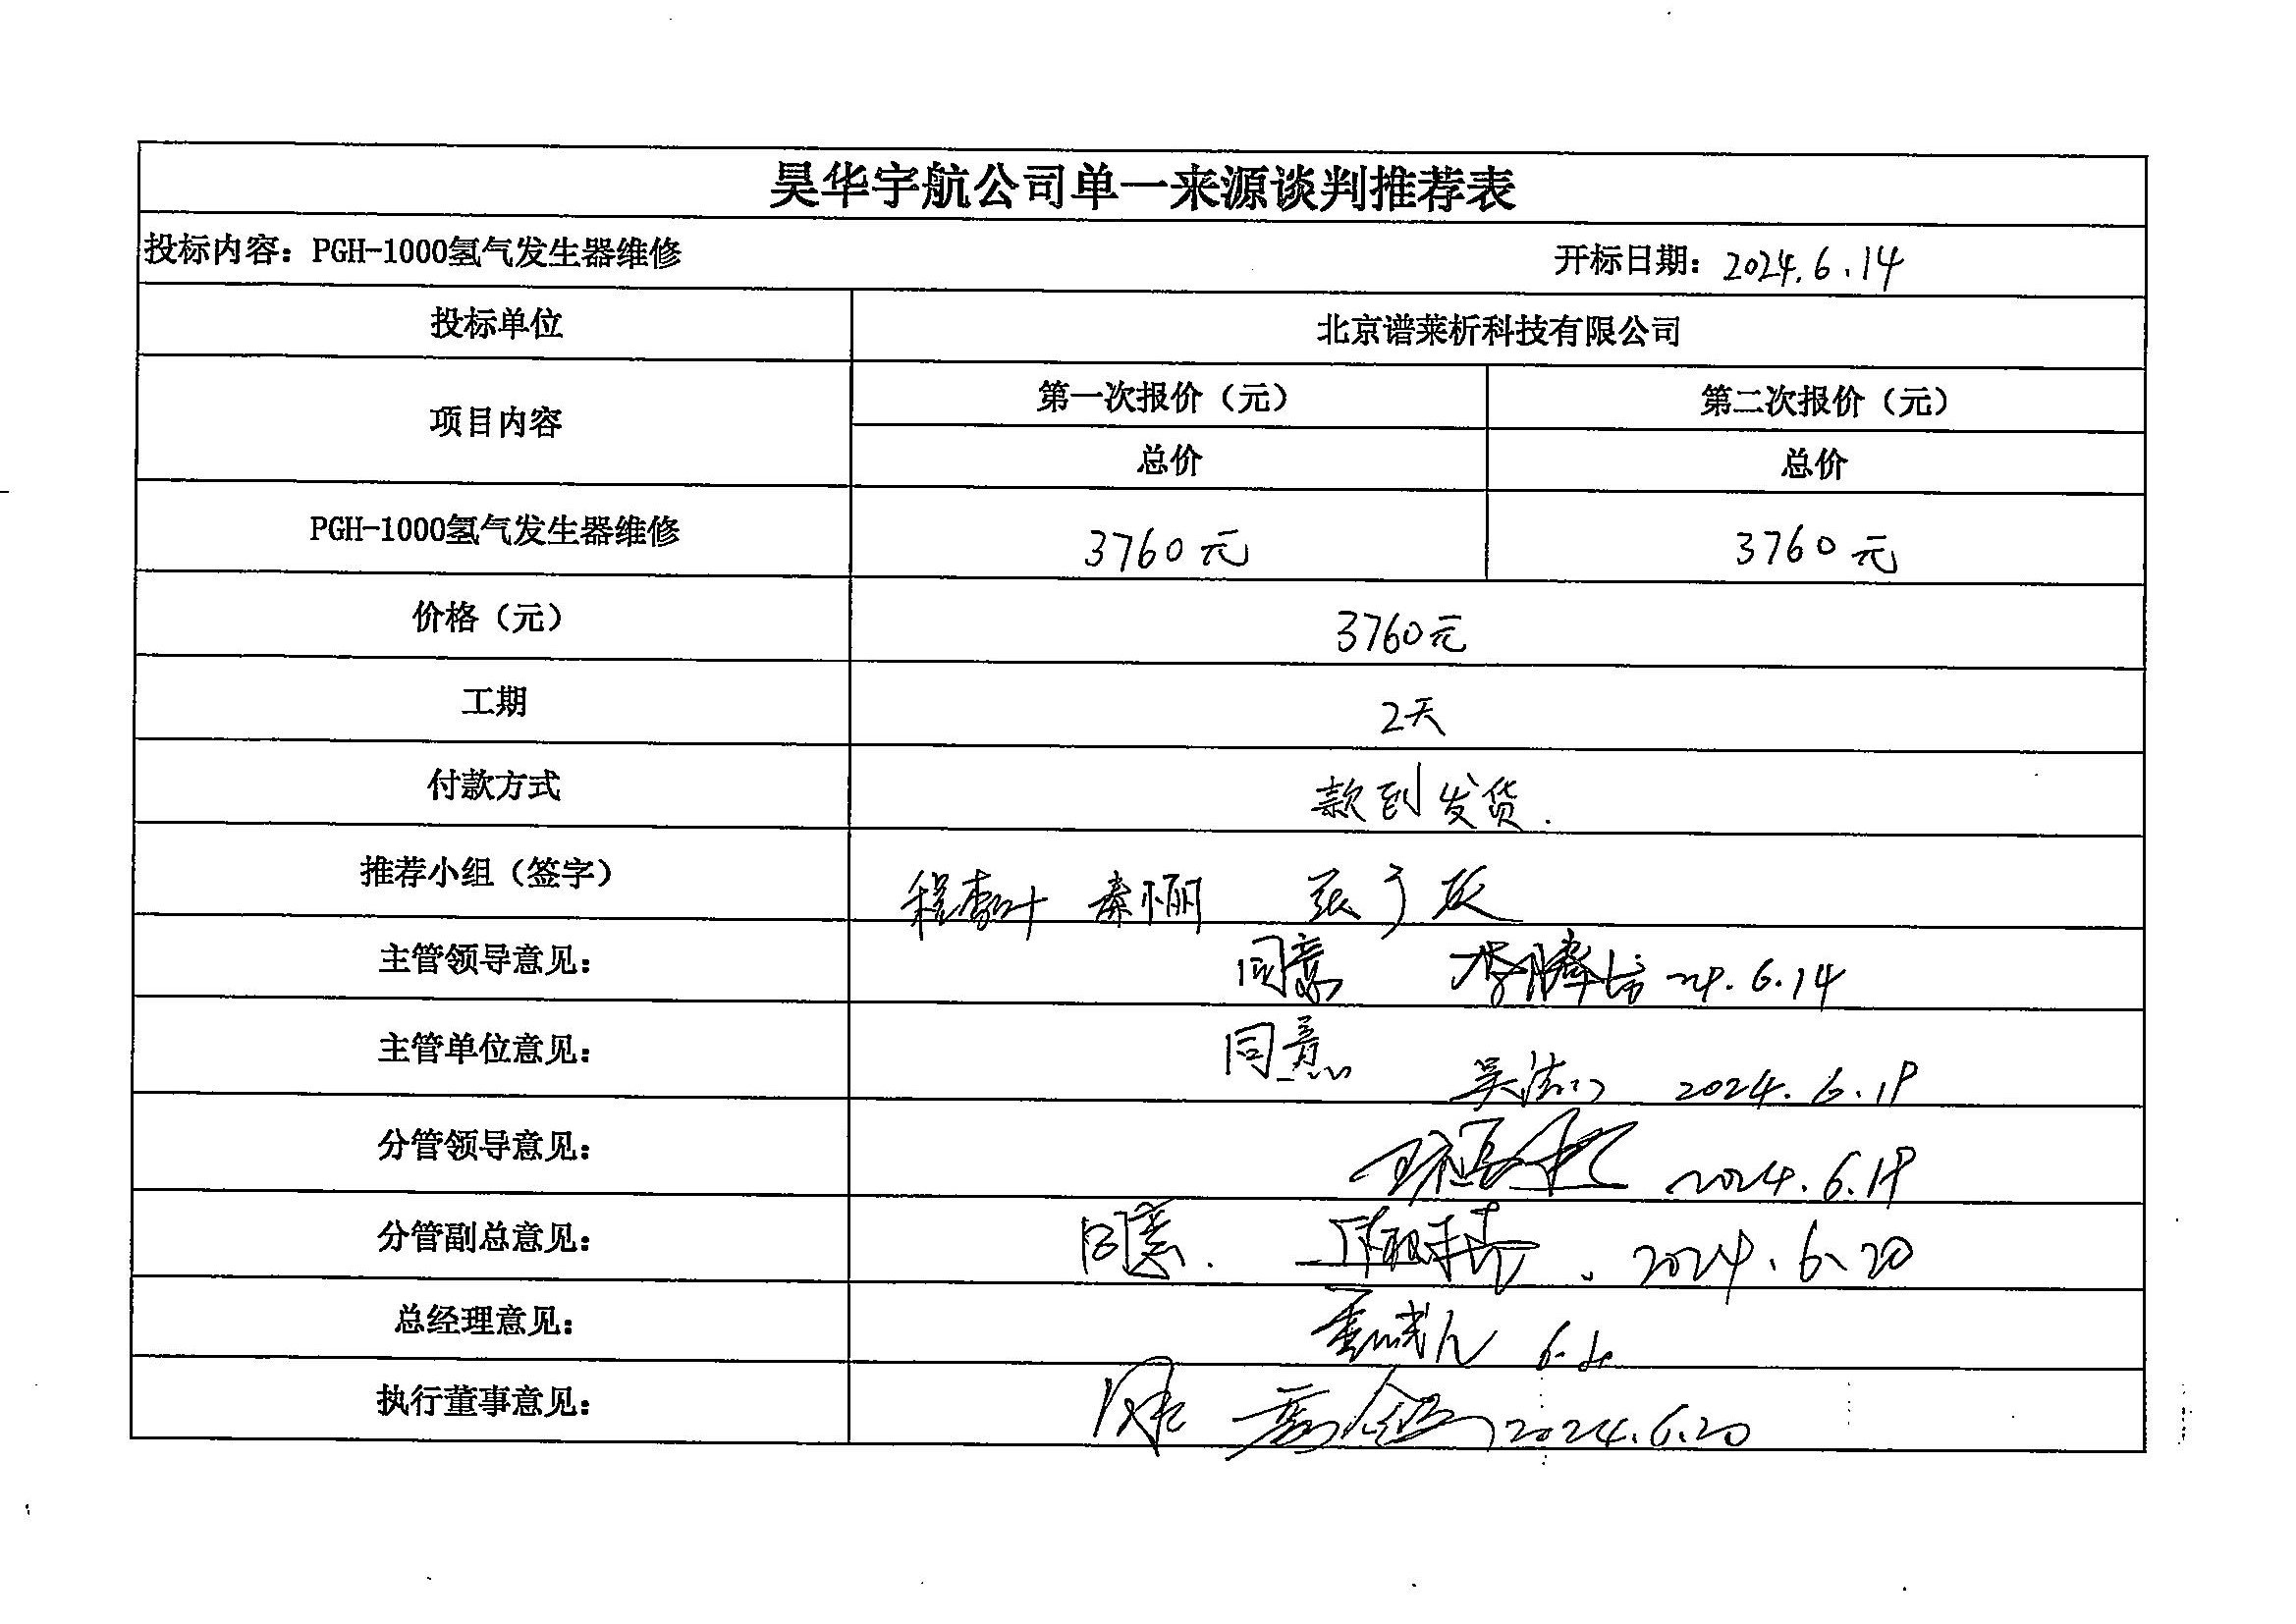 昊华宇航公司单一来源谈判推荐表
投标内容：PGH-1000氢气发生器维修 开标日期：2024.6.14
投标单位 北京谱莱析科技有限公司
项目内容 第一次报价（元） 第二次报价（元）
总价 总价
PGH-1000氢气发生器维修 3760元 3760元
价格（元） 3760元
工期 2天
付款方式 款到发货.
推荐小组（签字）
主管领导意见： 同意 6.14
主管单位意见： 同意 2024.6.19
分管领导意见： 2024.6.19
分管副总意见： 同意. 2024.6.20
总经理意见：
执行董事意见： 2024.6.20